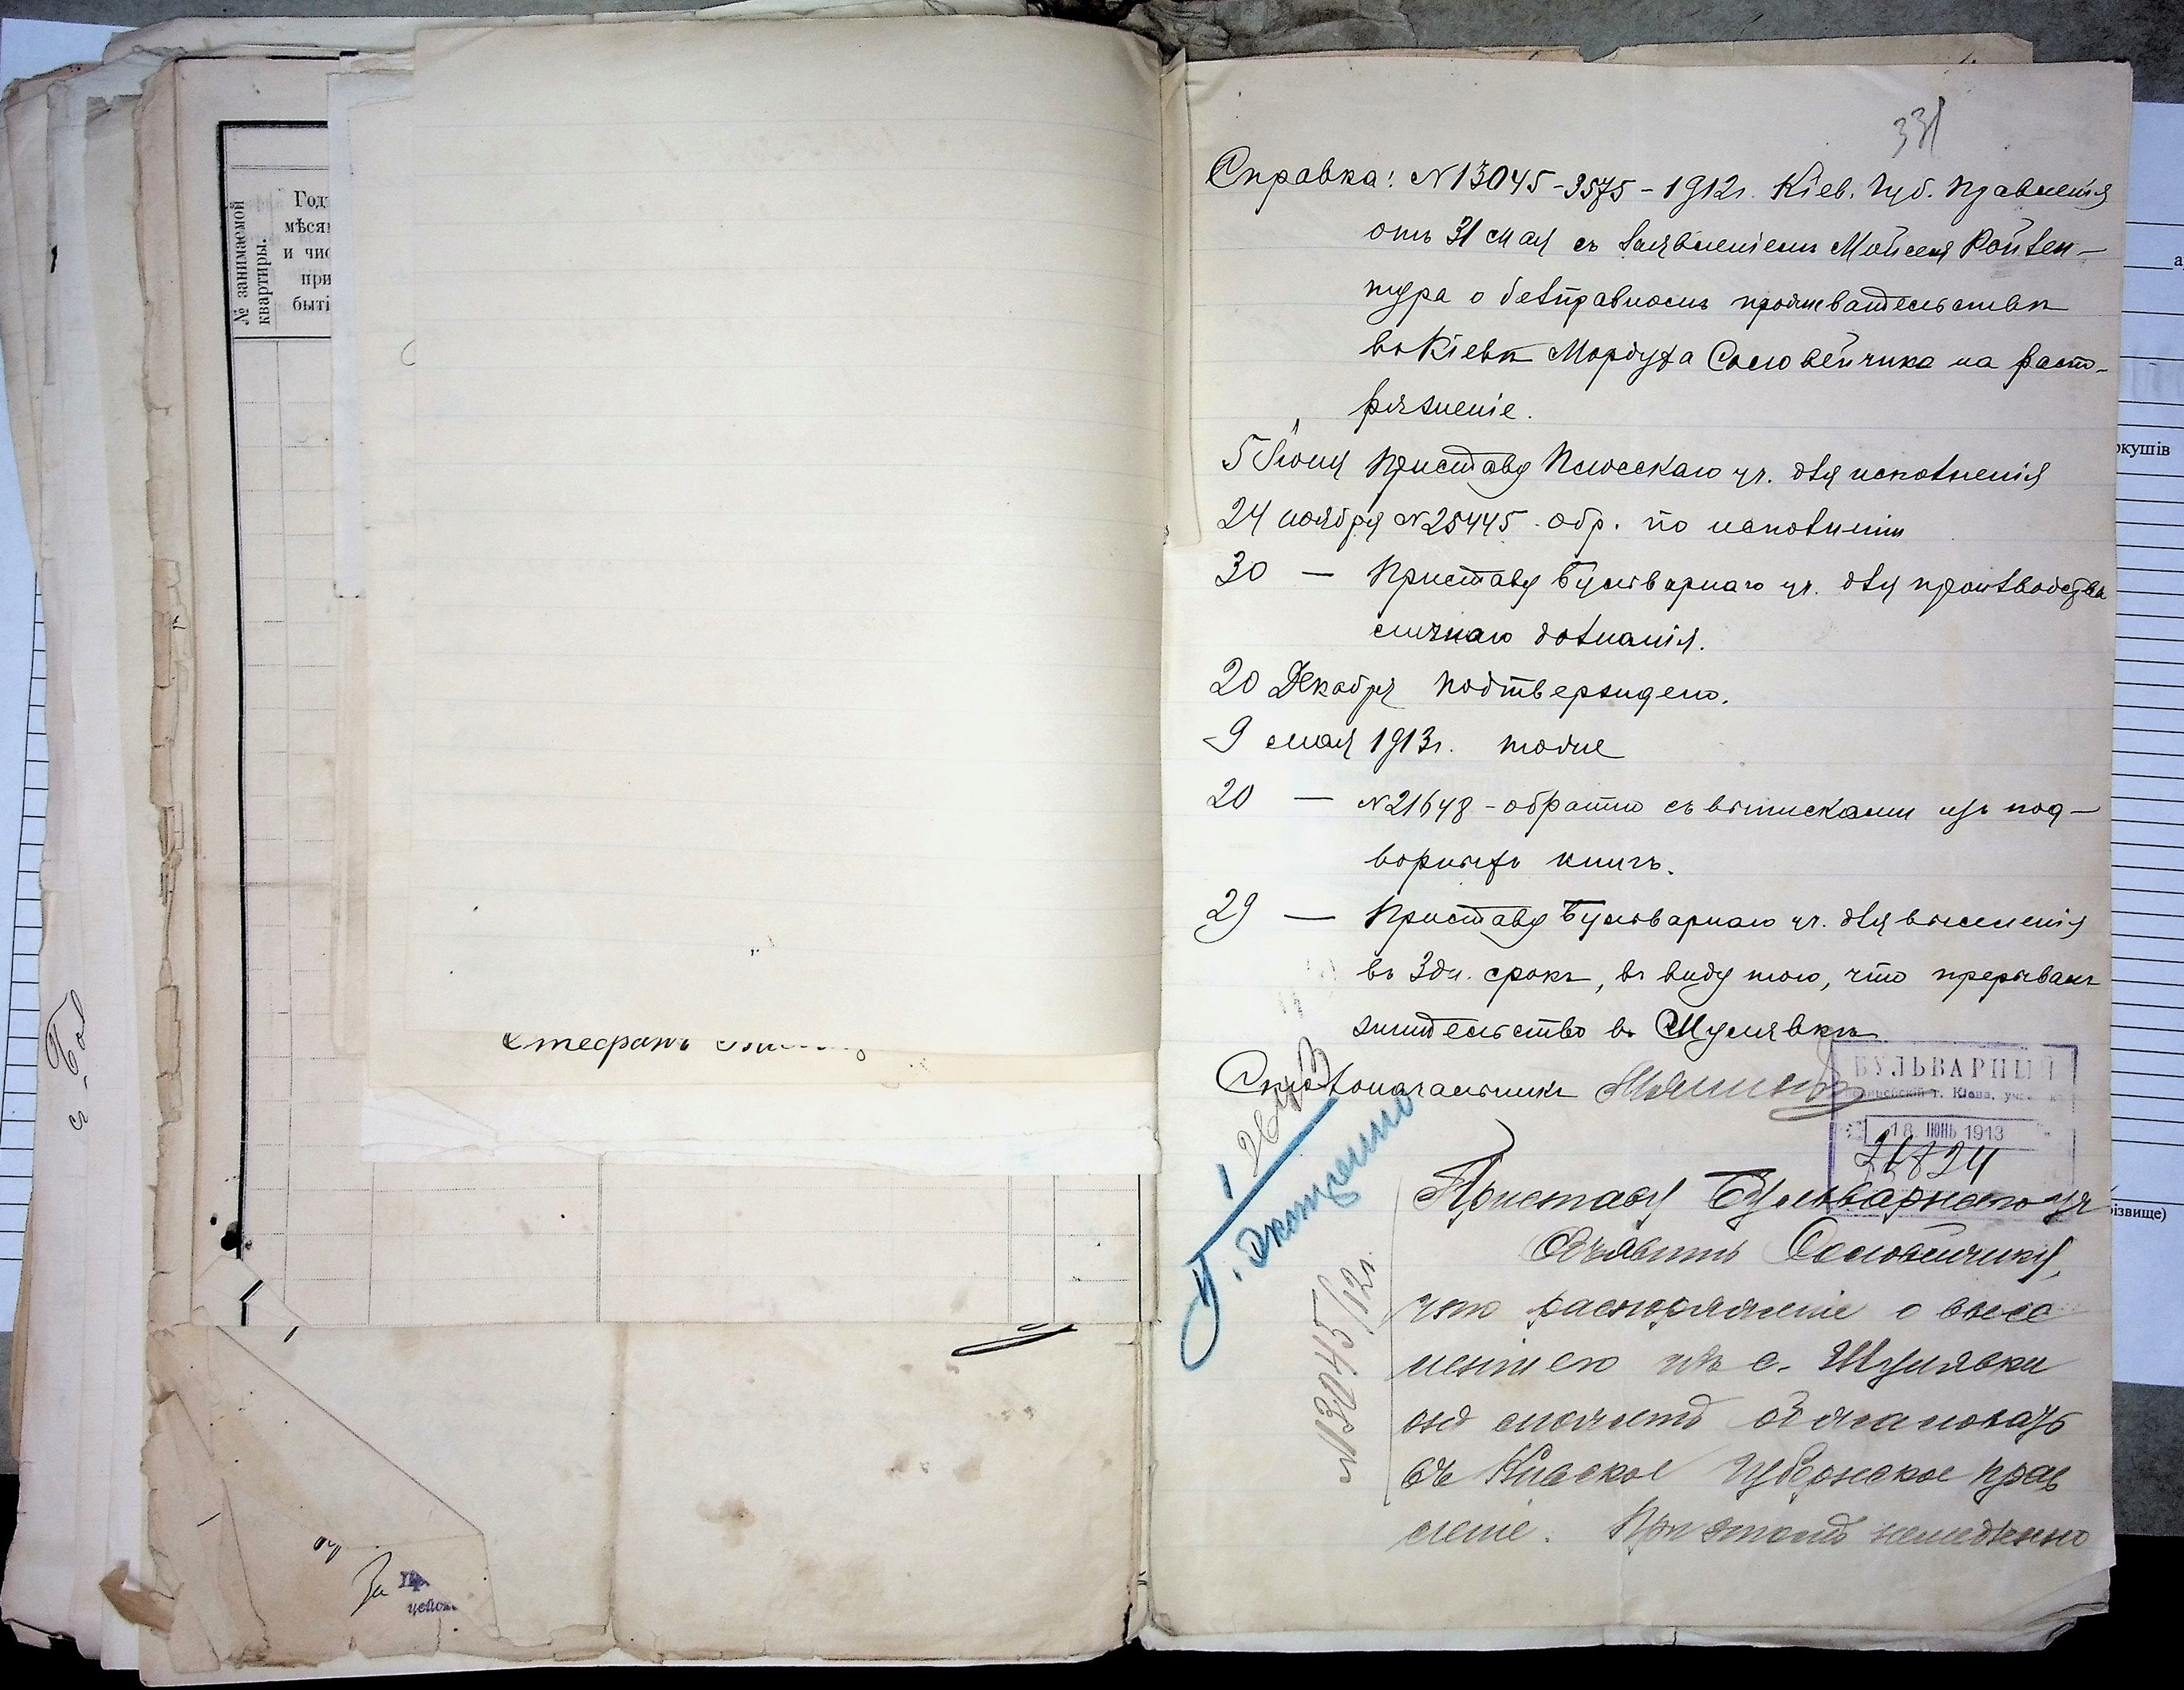 № занимаемой
квартиры.
Год
мѣся
и чис
при
быті
Стефанъ
За
331
Справка: № 13045-3575-1912г. Кіев. Губ. Правленія
отъ 31 мая съ заявленіемъ Мойсея Ройзен-
тура о безправномъ прожевательствѣ
въ Кіевѣ Мордуха Соловейчика на распо-
ряженіе.
5 Іюня Приставу Плосскаго уч. для исполненія
24 ноября № 25445 обр. по исполненіи
30 — Приставу Бульварнаго уч. для производства
личнаго дознанія.
20 Декабря подтверждено.
9 мая 1913г. тоже
20 — № 21648 - обратно съ выписками изъ под-
ворныхъ книгъ.
29 — Приставу Бульварнаго уч. для выселенія
въ 3дн. срокъ, въ виду того, что прерывалъ
жительство въ Шулявкѣ.
Столоначальникъ
БУЛЬВАРНЫЙ
г. Кіева, уч
18 ІЮНЬ 1913
21824
Приставу Бульварнаго уч
Объявить Соловейчику,
что распоряженіе о высе
леніи его изъ с. Шулявки
онъ можетъ обжаловать
въ Кіевское Губернское прав
леніе. При этомъ немедленно
№13045/12г.